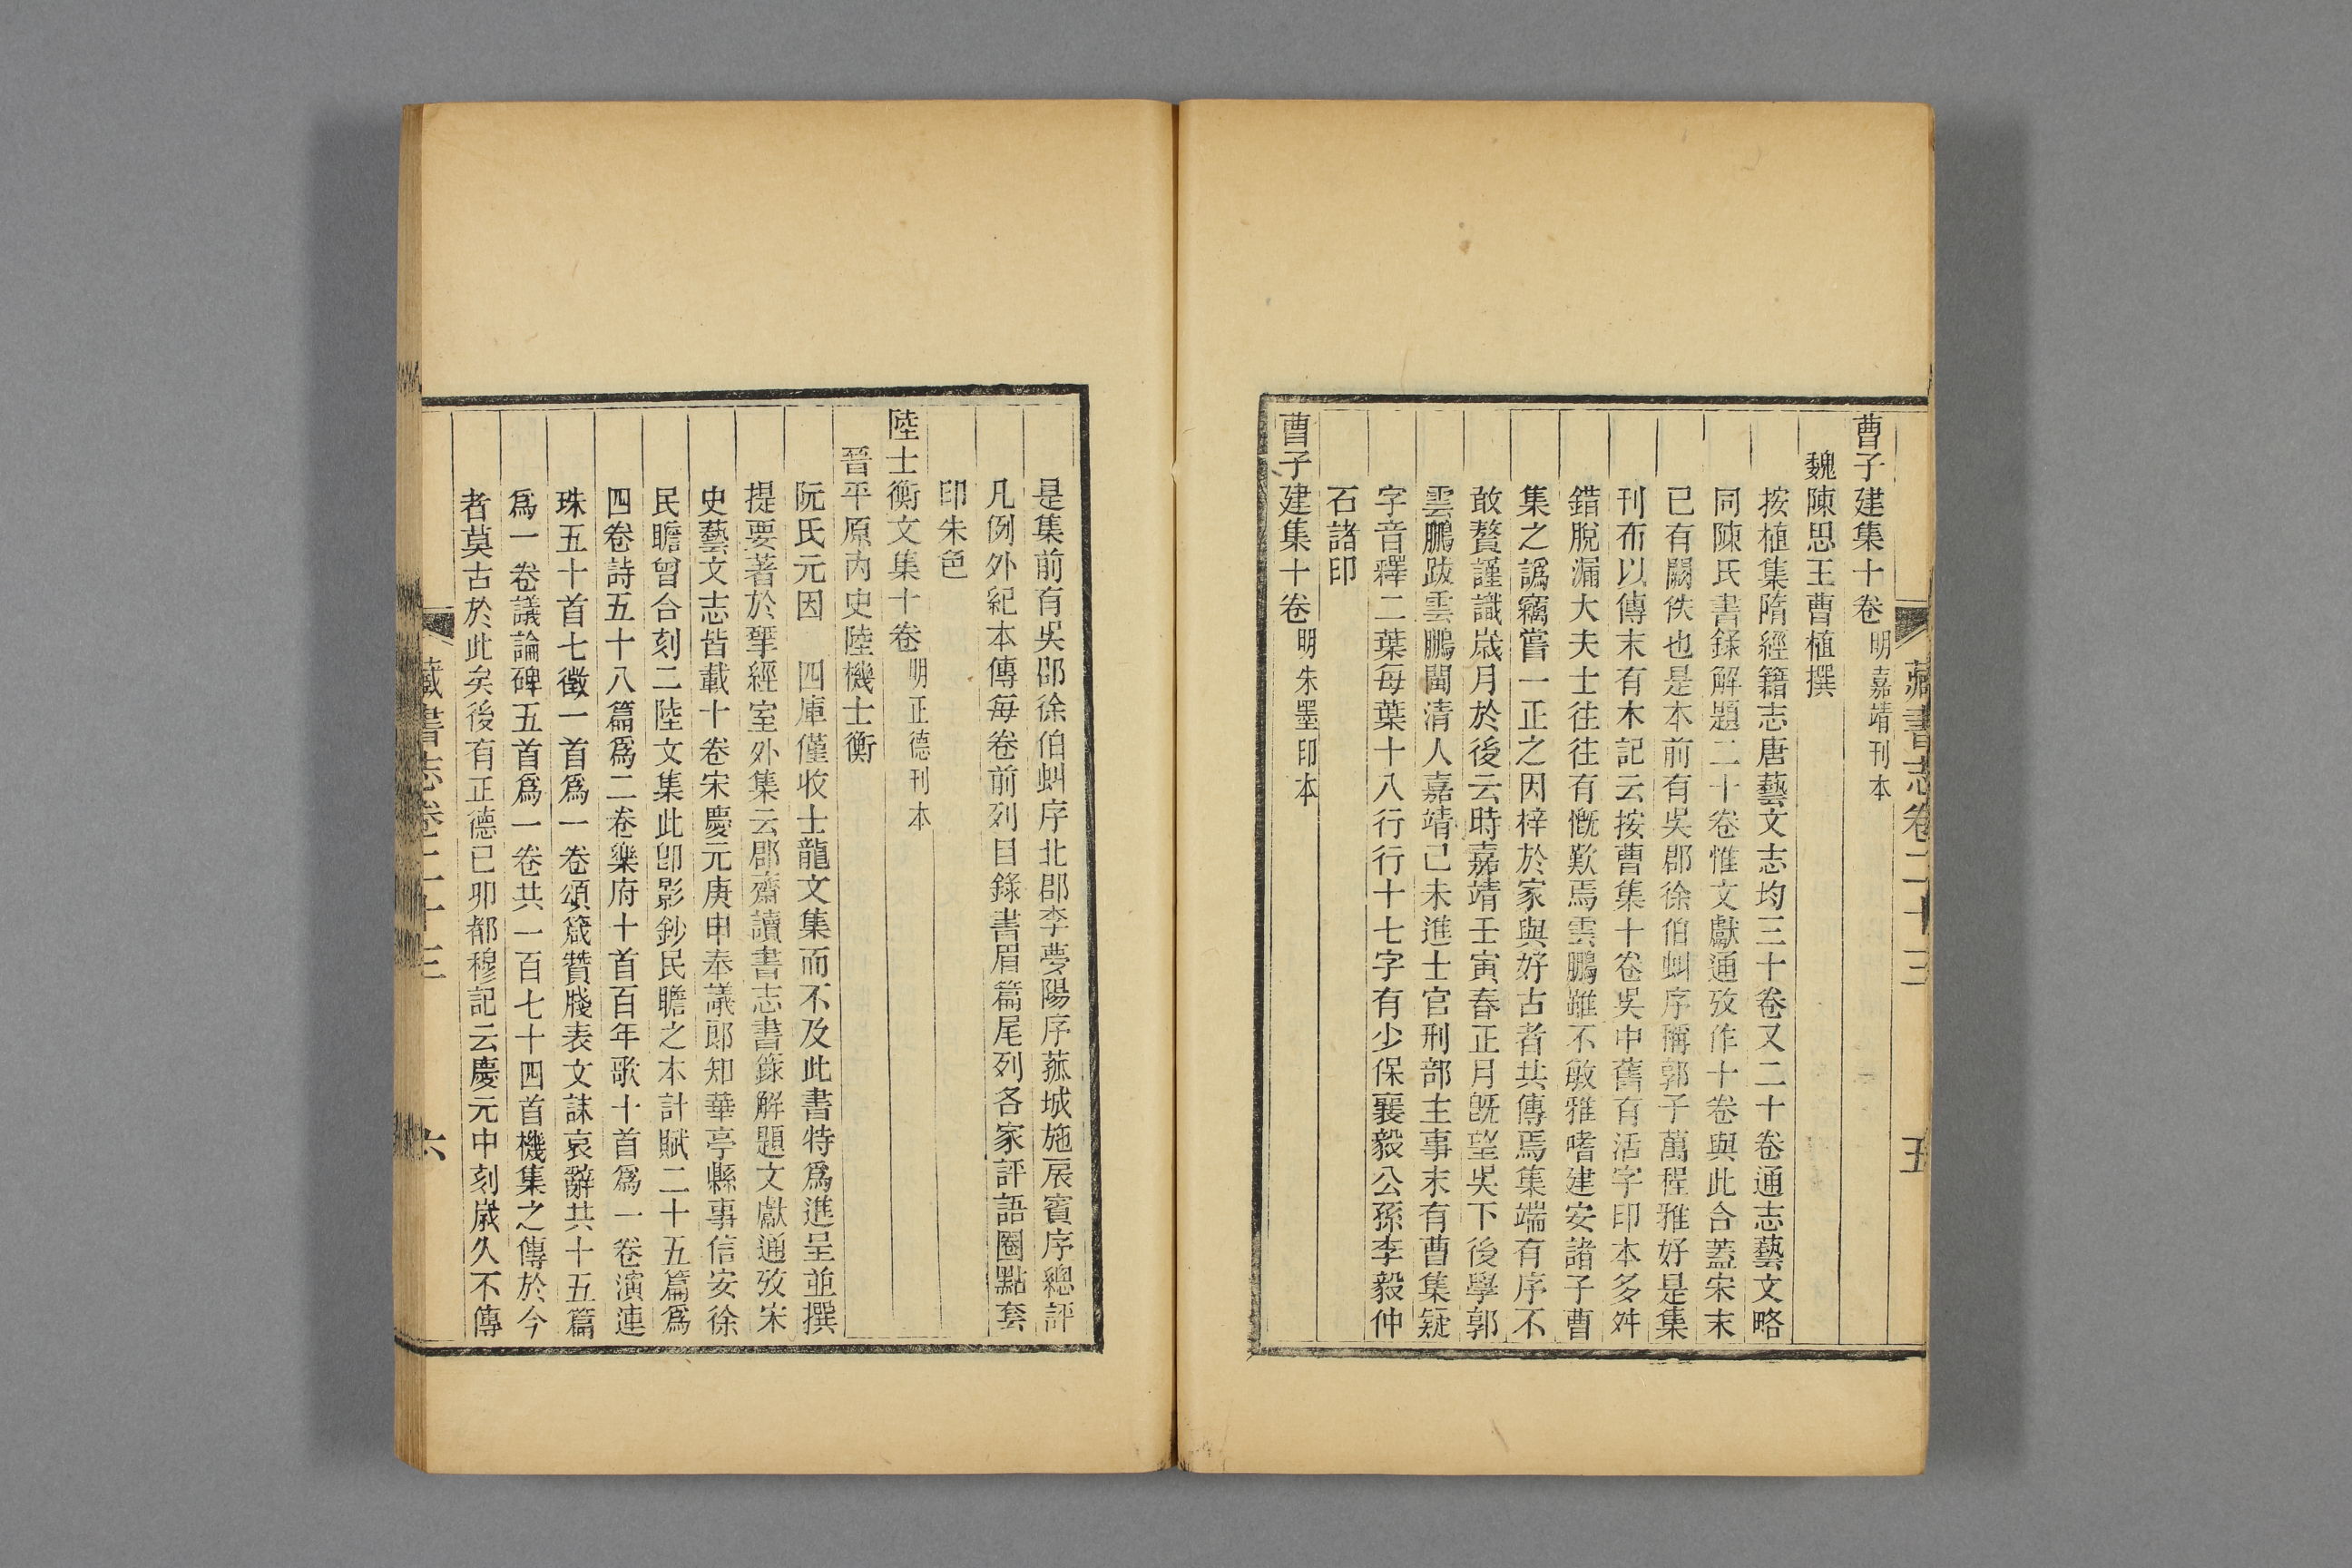 藏書志卷二十三
五
曹子建集十卷明嘉靖刊本
魏陳思王曹植撰
按植集隋經籍志唐藝文志均三十卷又二十卷通志藝文略
同陳氏書錄解題二十卷惟文獻通攷作十卷與此合蓋宋末
已有闕佚也是本前有吳郡徐伯虯序稱郭子萬程雅好是集
刊布以傳末有木記云按曹集十卷吳中舊有活字印本多舛
錯脫漏大夫士往往有慨歎焉雲鵬雖不敏雅嗜建安諸子曹
集之譌竊嘗一正之因梓於家與好古者共傳焉集端有序不
敢贅謹識歲月於後云時嘉靖壬寅春正月旣望吳下後學郭
雲鵬跋雲鵬閩清人嘉靖己未進士官刑部主事末有曹集疑
字音釋二葉每葉十八行行十七字有少保襄毅公孫李毅仲
石諸印
曹子建集十卷明朱墨印本
是集前有吳郡徐伯虯序北郡李夢陽序菰城施扆賓序總評
凡例外紀本傳每卷前列目錄書眉篇尾列各家評語圈點套
印朱色
陸士衡文集十卷明正德刊本
晉平原內史陸機士衡
阮氏元因　四庫僅收士龍文集而不及此書特爲進呈並撰
提要著於揅經室外集云郡齋讀書志書錄解題文獻通攷宋
史藝文志皆載十卷宋慶元庚申奉議郎知華亭縣事信安徐
民瞻曾合刻二陸文集此卽影鈔民瞻之本計賦二十五篇爲
四卷詩五十八篇爲二卷樂府十首百年歌十首爲一卷演連
珠五十首七徵一首爲一卷頌箴贊牋表文誄哀辭共十五篇
爲一卷議論碑五首爲一卷共一百七十四首機集之傳於今
者莫古於此矣後有正德己卯都穆記云慶元中刻歲久不傳
藏書志卷二十三
六